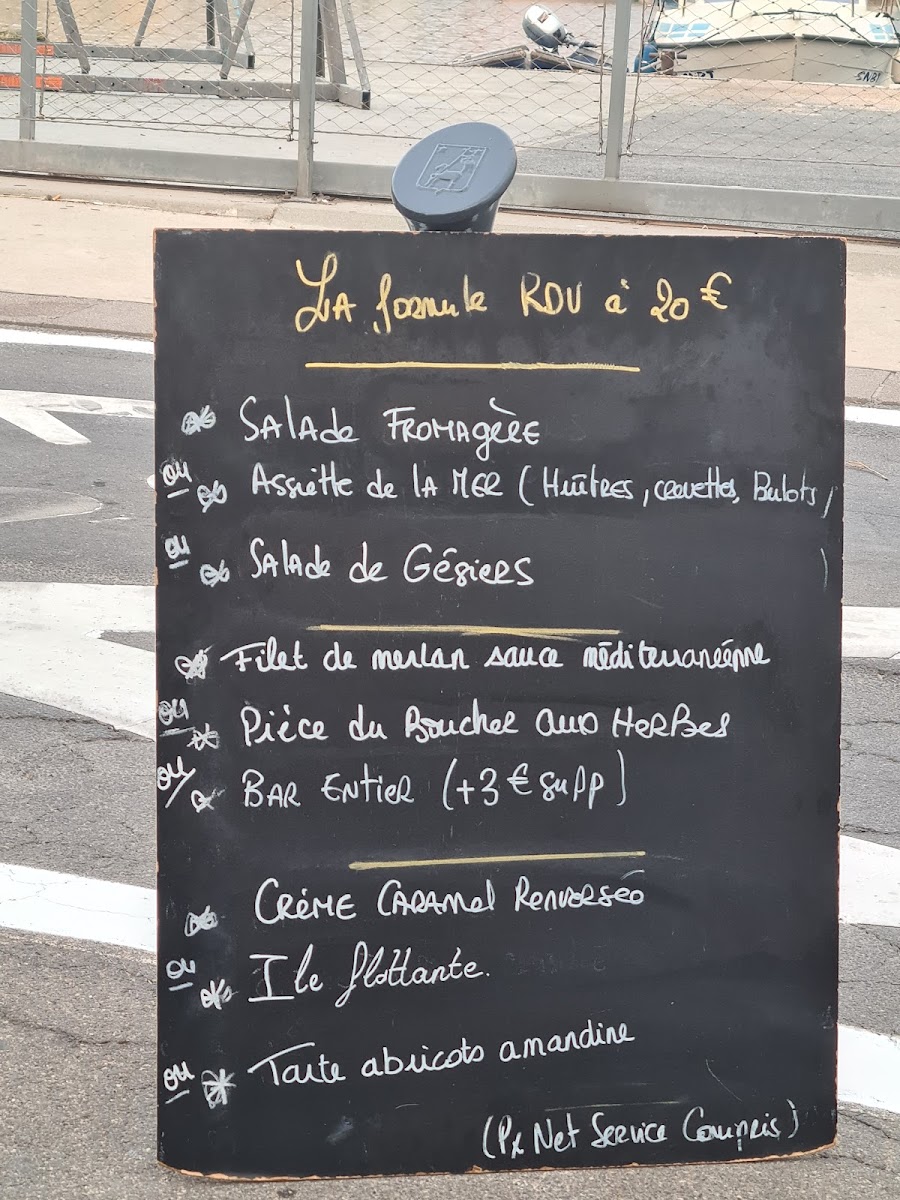 LA formule RDV à 20 €
Salade Fromagère
ou
Assiette de la Mer (Huîtres, crevettes, Bulots,
ou
Salade de Gésiers )
Filet de merlan sauce méditerranéenne
ou
Pièce du Boucher aux Herbes
ou
Bar Entier (+3 € supp)
Crème Caramel Renversée
ou
Ile flottante.
ou
Tarte abricots amandine
(Px Net Service Compris)